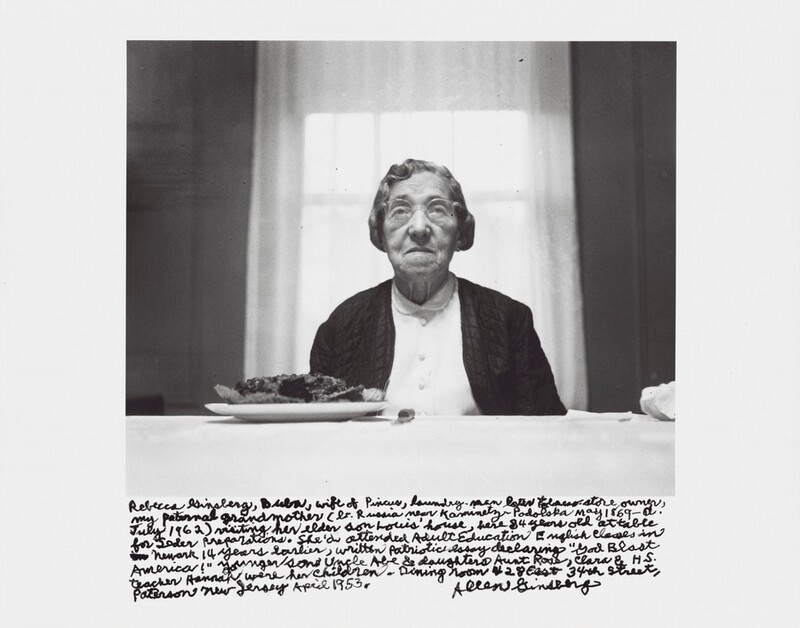 Rebecca Ginsberg, Buba, wife of Pincus, laundry-man later tobacco-store owner,
my paternal grandmother (b. Russia near Kaminetz-Podolska May 1869–d.
July 1962) visiting her elder son Louis' house, here 84 years old at table
for Seder preparations. She'd attended Adult Education English Classes in
Newark 14 years earlier, written Patriotic essay declaring "God Blast
America!" Younger son Uncle Abe & daughters Aunt Rose, Clara & H.S.
teacher Hannah, were her children. Dining room 428 East 34th Street,
Paterson New Jersey April 1953.
Allen Ginsberg